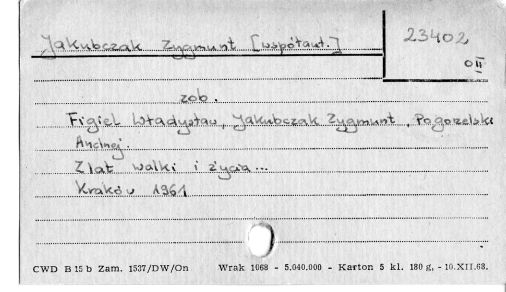 Jakubczak Zygmunt [współaut.]
23402
OII
zob.
Figiel Władysław, Jakubczak Zygmunt, Pogorzelski
Andrzej.
Z lat walki i życia...
Kraków 1961
CWD B 15 b Zam. 1537/DW/On Wrak 1068 - 5.040.000 - Karton 5 kl. 180 g, - 10.XII.68.